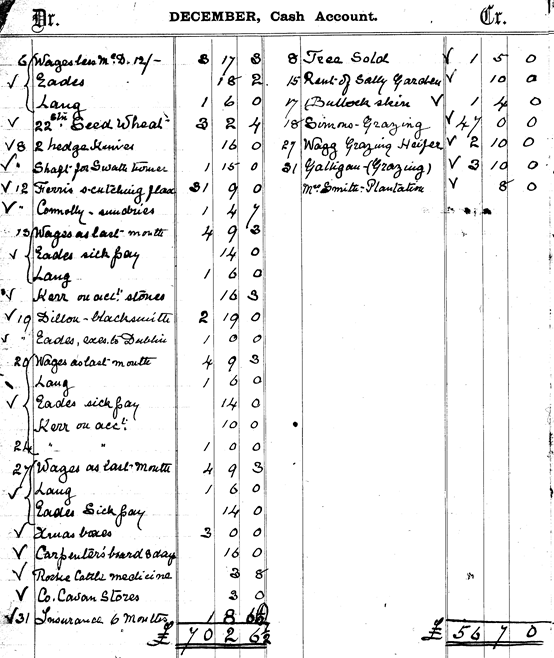 Dr. DECEMBER, Cash Account. Cr.
6 Wages less Mc D. 12/- 3 17 3
Eades 18 2
Lang 1 6 0
22 Stn Seed Wheat 3 2 4
8 2 hedge Knives 16 0
" Shaft for Swath turner 1 15 0
12 Ferris scutching flax 31 9 0
" Connolly - sundries 1 4 7
13 Wages as last month 4 9 3
Eades sick pay 14 0
Lang 1 6 0
Kerr on acct. stones 16 3
19 Dillon - blacksmith 2 19 0
" Eades, exes. to Dublin 1 0 0
20 Wages as last month 4 9 3
Lang 1 6 0
Eades sick pay 14 0
Kerr on acct. 10 0
24 " " 1 0 0
27 Wages as last month 4 9 3
Lang 1 6 0
Eades Sick pay 14 0
Xmas boxes 3 0 0
Carpenter's board 8 days 16 0
Cattle medicine 3 8
Co. Cavan Stores 3 0
31 Insurance 6 Months 1 8 6½
£ 70 2 6½
8 Tree Sold 1 5 0
15 Rent of Sally Garden 10 0
17 Bullock skin 1 4 0
18 Simons - Grazing 47 0 0
27 Wagg Grazing Heifer 2 10 0
31 Galligan (Grazing) 3 10 0
Mrs Smith - Plantation 8 0
£ 56 7 0